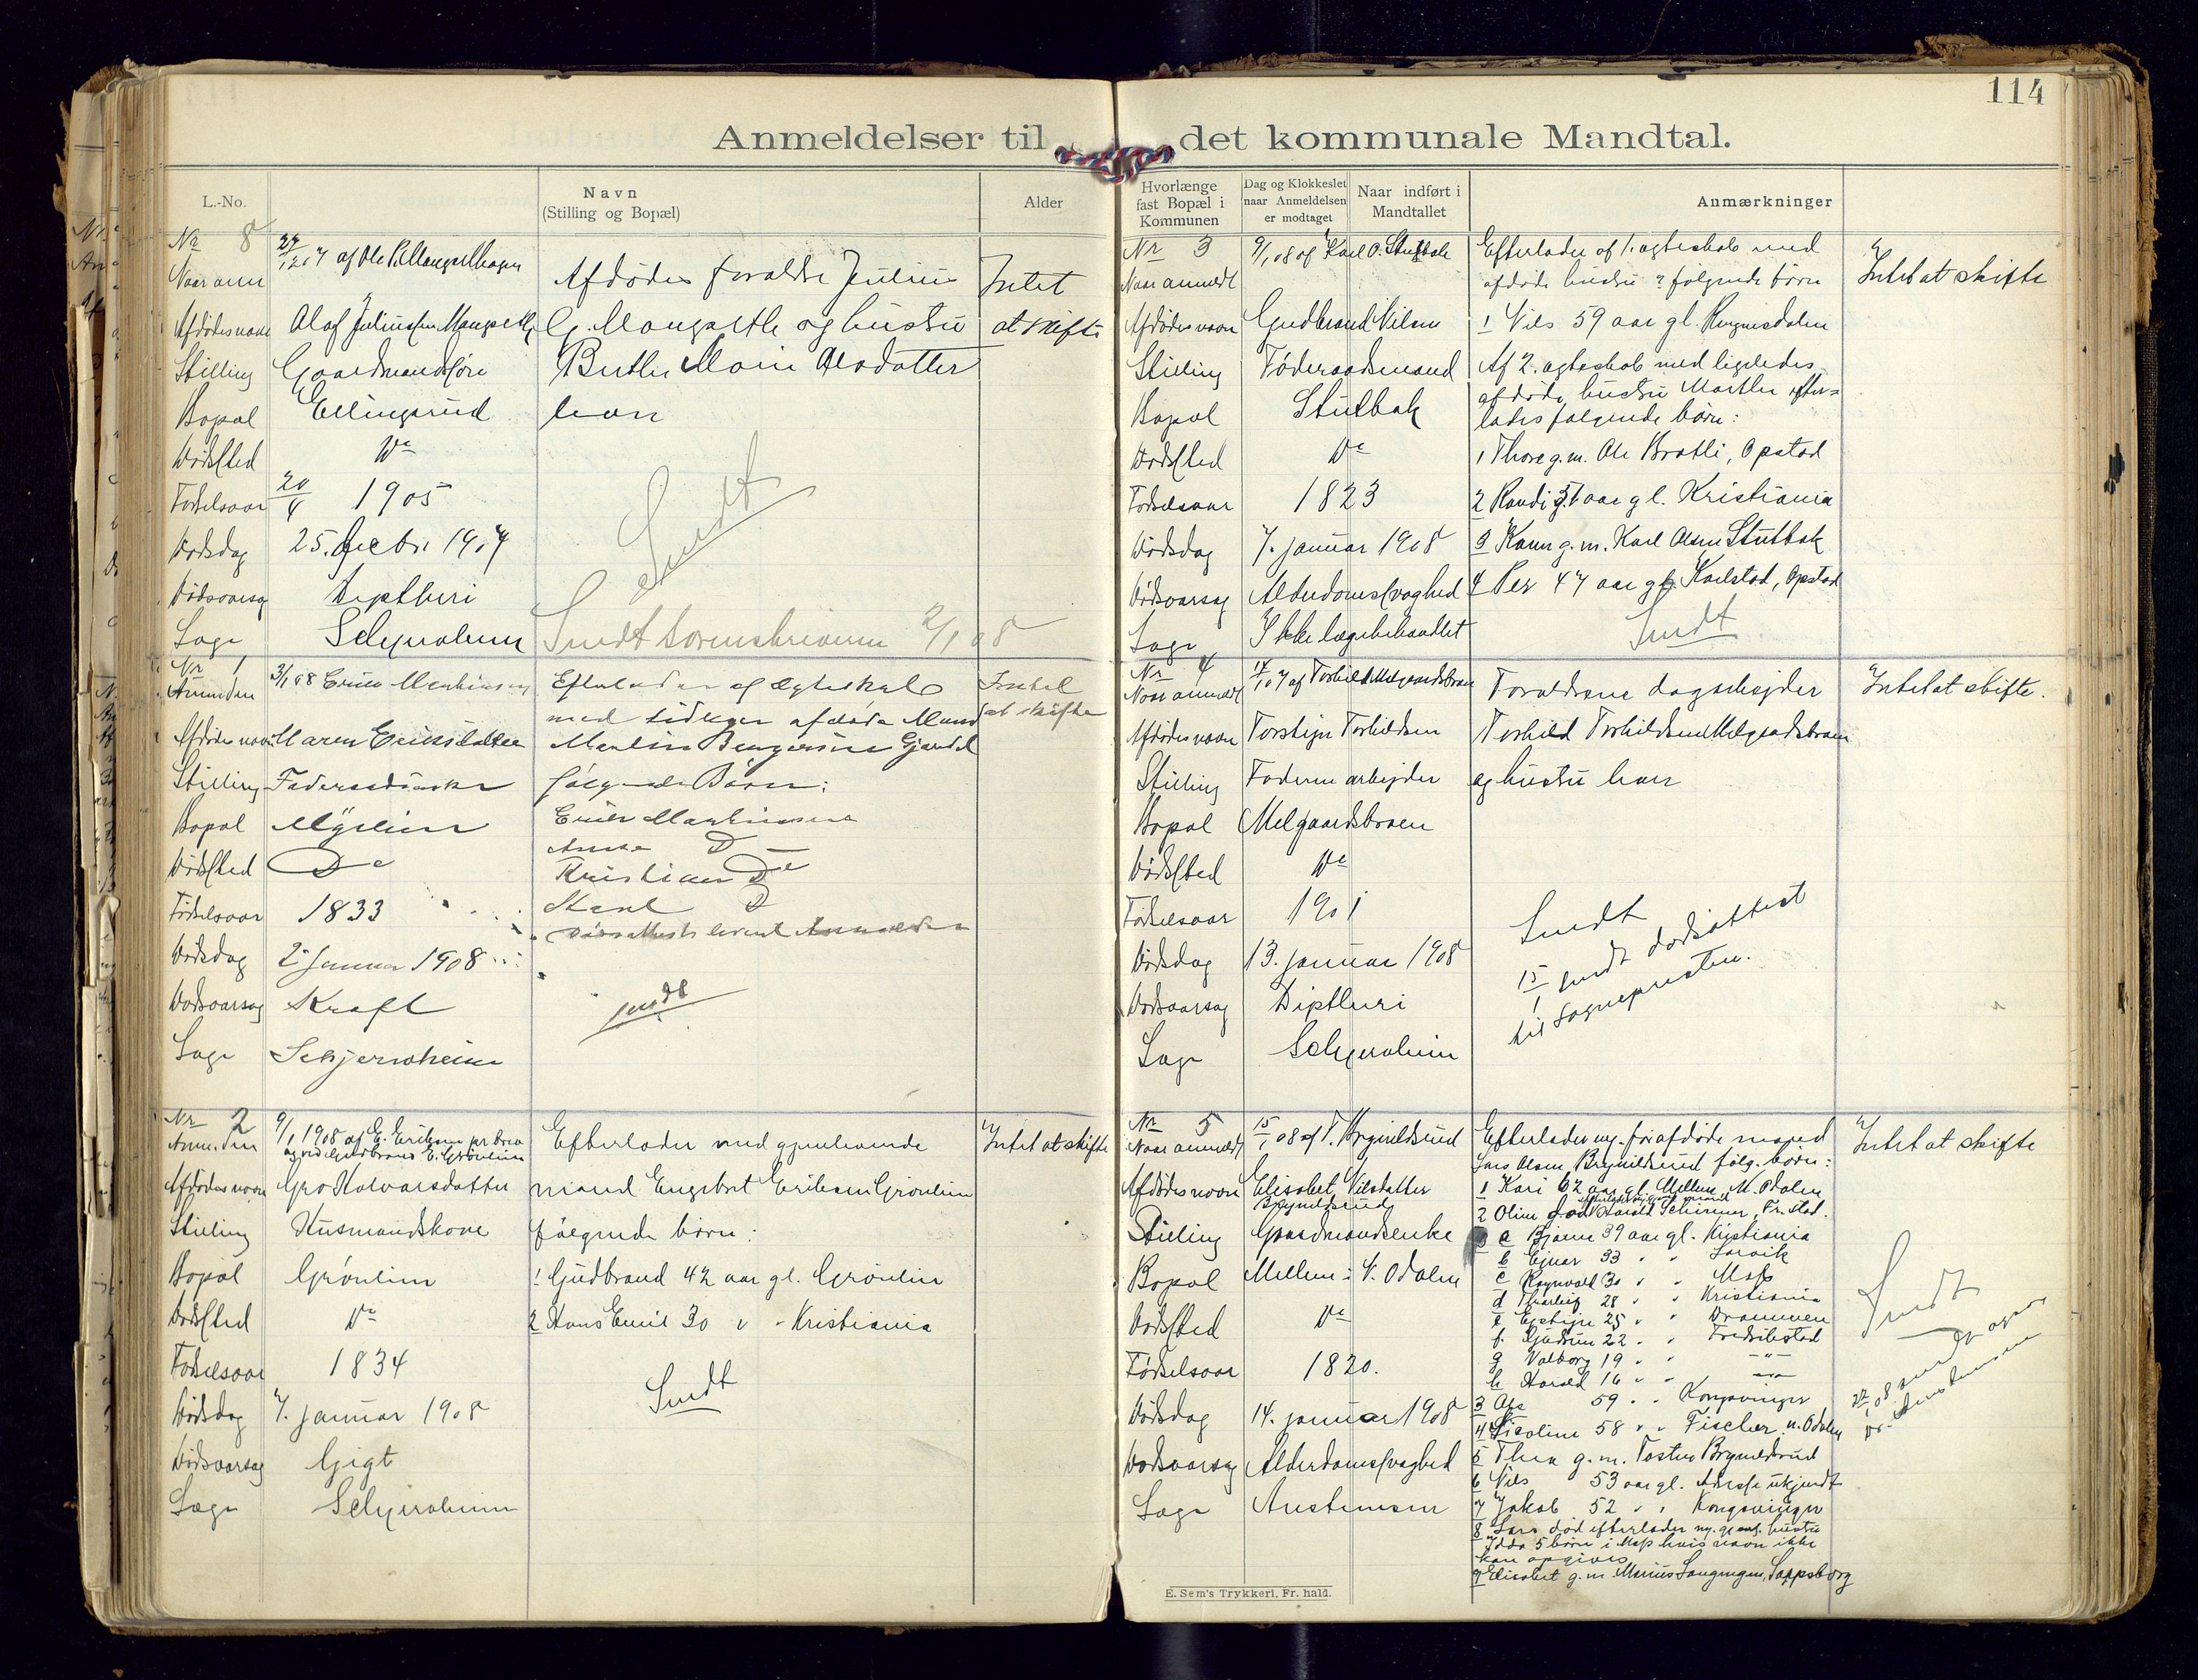 114
Anmeldelser til det kommunale Mandtal.
L.-No.
Navn
(Stilling og Bopæl)
Alder
Hvorlænge
fast Bopæl i
Kommunen
Dag og Klokkeslet
naar Anmeldelsen
er modtaget
Naar indført i
Mandtallet
Anmærkninger
Nr 8
27/12 07 af Ole P.
Naar anm
Afdødes forældre Julius
Intet
Afdødes navn Olaf Juliussen
G. og hustru
at skifte
Stilling Gaardmandssøn
Berthe Marie Olsdatter
Bopæl Ellingsrud
Dødssted Do
Fødselsaar 20/4 1905
Dødsdag 25. decbr. 1907
Sendt
Dødsaarsag Diptheri
Læge Schjerolheim
Sendt Sorenskriveren 2/1 08
Nr 1
Anmelden 3/1 08
Efterlader af Ægteskab
med tidligere afdøde Mand
at skifte
Afdødes navn Maren Eriksdatter
Stilling Føderaadsenke
følgende Børn:
Bopæl
Anne D
Dødssted Do
Kristian Do
Fødselsaar 1833
Karl D
Dødsdag 2 Januar 1908
Dødsaarsag Kræft
sendt
Læge Schjerolheim
Nr 2
Anm. den 9/1 1908 af E. Eriksen pr brev
og ved Gudbrand E. Grønlien
Efterlader med gjenlevende
Intet at skifte
Afdødes navn Gro Halvorsdatter
mand Engebret Eriksen Grønlien
Stilling Husmandskone
følgende børn:
Bopæl Grønlien
1 Gudbrand 42 aar gl. Grønlien
Dødssted Do
2 Hans Emil 30 " " Kristiania
Fødselsaar 1834
Sendt
Dødsdag 7. januar 1908
Dødsaarsag Gigt
Læge Schjerolheim
Nr 3
9/1 08 af Karl O. Stutbak
Efterlader af 1. ægteskab med
Naar anmeldt
afdøde hustru ? følgende børn
Intet at skifte
Afdødes navn Gudbrand Nilsen
1 Nils 59 aar gl.
Stilling Føderaadsmand
Af 2. ægteskab med ligeledes
afdøde hustru Marthe efter=
Bopæl Stutbak
lades følgende børn:
Dødssted Do
1 Thore g.m. Ole Bratli, Opstad
Fødselsaar 1823
2 Randi 51 aar gl. Kristiania
Dødsdag 7. januar 1908
3 Karen g.m. Karl Olsen Stutbak
Dødsaarsag Alderdomssvaghed
4 Per 47 aar gl. Karlstad, Opstad
Læge Ikke lægebehandlet
Sendt
Nr 4
Naar anmeldt 14/1 07 af Torkild Melgaardsbraen
Forældrene dagarbejder
Intet at skifte.
Afdødes navn Torstejn Torkildsen
Torkild Torkildsen Melgaardsbraen
Stilling Faderen arbejder
og hustru
Bopæl Melgaardsbraen
Dødssted Do
Fødselsaar 1901
Sendt
Dødsdag 13. januar 1908
15/1 sendt dødsattest
til Sognepresten.
Dødsaarsag Diptheri
Læge Schjerolheim
Nr 5
Naar anmeldt 15/1 08 af T. Brynildsrud
Efterlader m. før afdøde mand
Intet at skifte
Lars Olsen Brynildsrud følg. børn:
Afdødes navn Elisabet Nilsdatter
Brynildsrud
1 Kari 62 aar gl. Mellem, N. Odalen
2 Oline død Harald Schirmer, Fr.stad.
Stilling Gaardmandsenke
a Bjarne 39 aar gl. Kristiania
b Ejnar 33 " " Larvik
Bopæl Mellem i N. Odalen
c Ragnvald 30 " " Moss
d Thorleif 28 " " Kristiania
Dødssted Do
e Ejstejn 25 " " Drammen
f. Gudrun 22 " " Fredrikstad
g Valborg 19 " " —"—
Fødselsaar 1820.
h Harald 16 " " —"—
Sendt
Dødsdag 14. januar 1908
3 Ole 59 " " Kongsvinger
4 Nicoline 58 " " Fischer N. Odalen
Dødsaarsag Alderdomssvaghed
5 Thea g.m. Torsten Brynildsrud
6 Nils 53 aar gl. Adresse ukjendt
Læge Austensen
7 Jakob 52 " " Kongsvinger
8 Lars død efterlader m. gjenl. hustru
Idda 5 børn i Moss hvis navn ikke
kan opgives
9 Elisabet g.m. Marius Langengen, Sarpsborg
E. Sem's Trykkeri, Fr. hald.